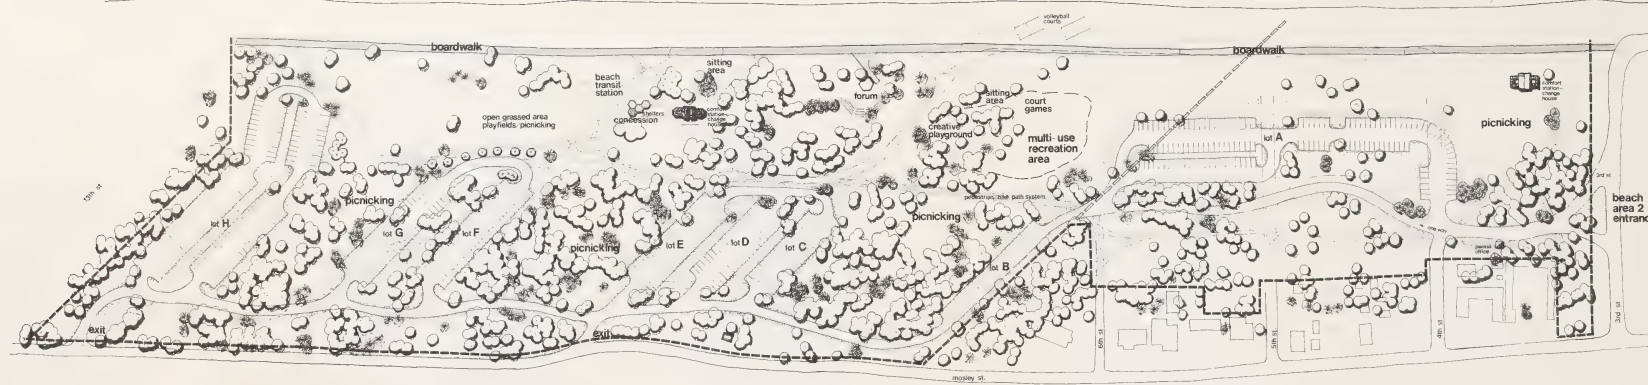 volleyball
courts
boardwalk
boardwalk
beach
transit
station
sitting
area
shelters
concession
comfort
station-
change
house
forum
sitting
area
court
games
creative
playground
multi-use
recreation
area
open grassed area
playfields/picnicking
lot A
comfort
station-
change
house
picnicking
13th st
picnicking
lot H
lot G
lot F
picnicking
lot E
lot D
lot C
picnicking
pedestrian/bike path system
lot B
one way
3rd st
beach
area 2
entranc
exit
exit
6th st
5th st
4th st
3rd st
mosley st.